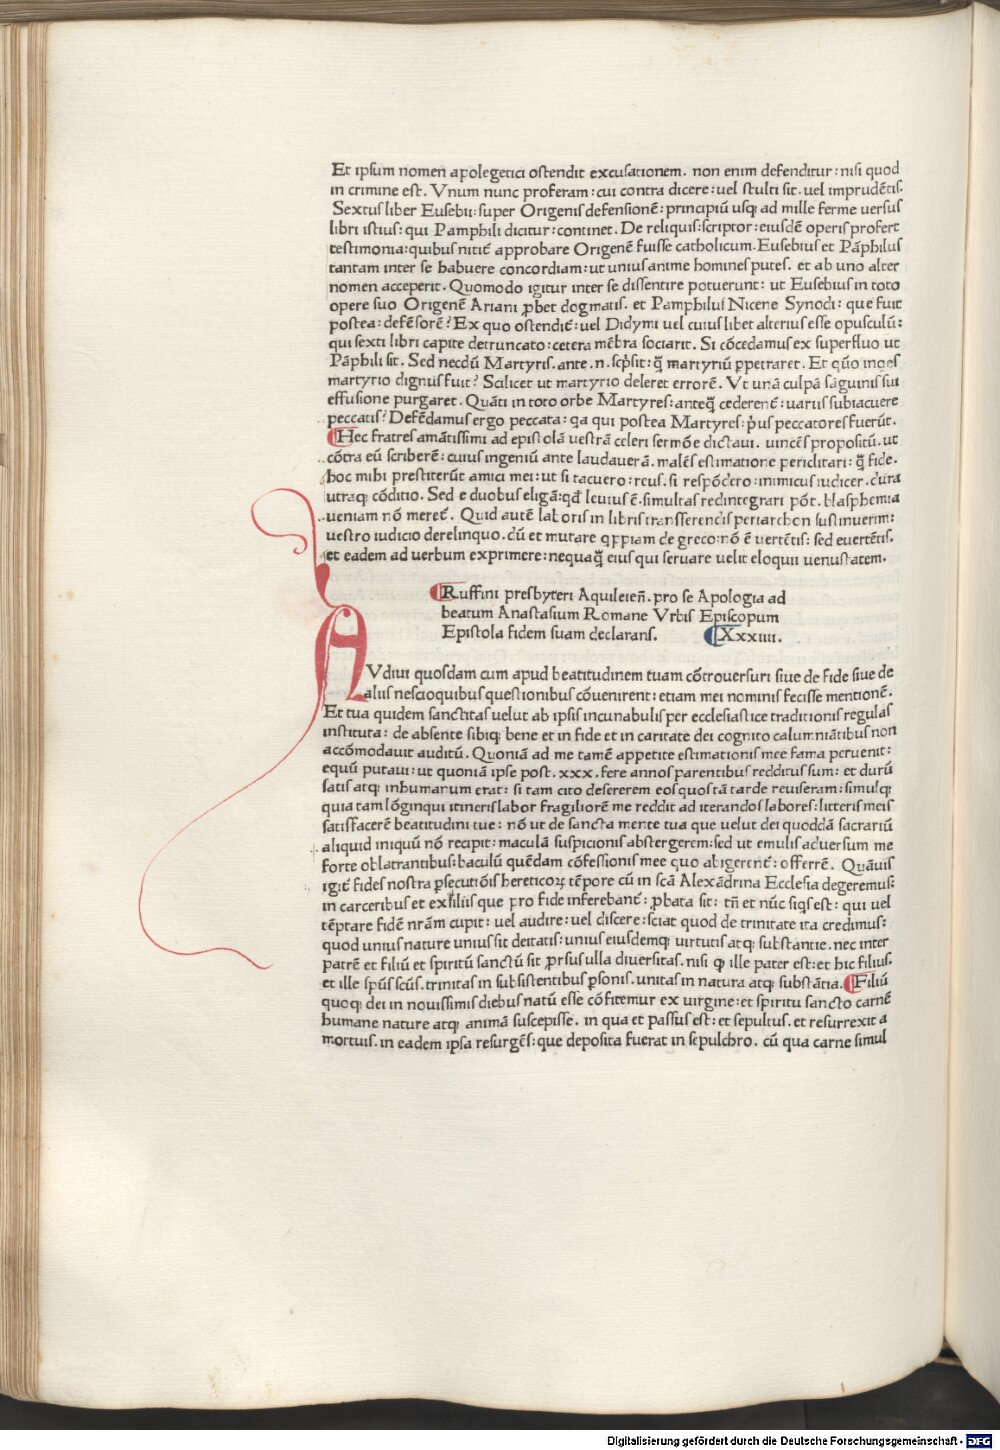 Et ipsum nomen apolegetici ostendit excusationem. non enim defenditur: nisi quod
in crimine est. Vnum nunc proferam: cui contra dicere: uel stulti sit. uel imprudētis.
Sextus liber Eusebii: super Origenis defensionē: principiū usq; ad mille ferme uersus
libri istius: qui Pamphili dicitur: continet. De reliquis: scriptor: eiusdē operis profert
testimonia: quibus nitit̄ approbare Origenē fuisse catholicum. Eusebius et Pāphilus
tantam inter se habuere concordiam: ut unius anime homines putes. et ab uno alter
nomen acceperit. Quomodo igitur inter se dissentire potuerunt: ut Eusebius in toto
opere suo Origenē Ariani ꝓbet dogmatis. et Pamphilus Nicene Synodi: que fuit
postea: defēsorē? Ex quo ostendit̄: uel Didymi uel cuius libet alterius esse opusculū:
qui sexti libri capite detruncato: cetera mēbra sociarit. Si cōcedamus ex superfluo ut
Pāphili sit. Sed necdū Martyris. ante .n. scp̄sit: q̄ martyriū ꝑpetraret. Et quō inqes
martyrio dignus fuit? Scilicet ut martyrio deleret errorē. Vt unā culpā sāguinis sui
effusione purgaret. Quāti in toto orbe Martyres: anteq̄ cederent̄: uariis subiacuere
peccatis? Defēdamus ergo peccata: qa qui postea Martyres: p̄us peccatores fuerūt.
Hec fratres amātissimi ad epistolā uestrā celeri sermōe dictaui. uincēs propositū. ut
cōtra eū scriberē: cuius ingeniū ante laudauerā. malēs estimatione periclitari: q̄ fide.
hoc mihi prestiterūt amici mei: ut si tacuero: reus. si respōdero: inimicus iudicer. dura
utraq; cōditio. Sed e duobus eligā: qd̄ leuius ē. simultas redintegrari pōt. blasphemia
ueniam nō meret̄. Quid autē laboris in libris transferendis periarchon sustinuerim:
uestro iudicio derelinquo. dū et mutare qꝑpiam de greco: nō ē uertētis: sed euertētis.
et eadem ad uerbum exprimere: nequaq̄ eius qui seruare uelit eloquii uenustatem.
Ruffini presbyteri Aquileien̄. pro se Apologia ad
beatum Anastasium Romane Vrbis Episcopum
Epistola fidem suam declarans. Xxxiiii.
AVdiui quosdam cum apud beatitudinem tuam cōtrouersuri siue de fide siue de
aliis nescioquibus questionibus cōuenirent: etiam mei nominis fecisse mentionē.
Et tua quidem sanctitas uelut ab ipsis incunabulis per ecclesiastice traditionis regulas
instituta: de absente sibiq; bene et in fide et in caritate dei cognito calumniātibus non
accōmodauit auditū. Quoniā ad me tamē appetite estimationis mee fama peruenit:
equū putaui: ut quoniā ipse post .xxx. fere annos parentibus redditus sum: et durū
satis atq; inhumanum erat: si tam cito desererem eos quos tā tarde reuiseram: simulq;
quia tam lōginqui itineris labor fragiliorē me reddit ad iterandos labores: litteris meis
satisfacerē beatitudini tue: nō ut de sancta mente tua que uelut dei quoddā sacrariū
aliquid iniquū nō recipit: maculā suspicionis abstergerem: sed ut emulis aduersum me
forte oblatrantibus: baculū quēdam cōfessionis mee quo abigerent̄: offerrē. Quāuis
igit̄ fides nostra ꝑsecutiōis hereticoꝝ tēpore cū in scā Alexādrina Ecclesia degeremus:
in carceribus et exiliis que pro fide inferebant̄: ꝓbata sit: tn̄ et nūc siqs est: qui uel
tēptare fidē nr̄am cupit: uel audire: uel discere: sciat quod de trinitate ita credimus:
quod unius nature unius sit deitatis: unius eiusdemq; uirtutis atq; substantie. nec inter
patrē et filiū et spiritū sanctū sit ꝓrsus ulla diuersitas. nisi ꝙ ille pater est: et hic filius.
et ille sp̄us scūs. trinitas in subsistentibus ꝑsonis. unitas in natura atq; substātia. Filiū
quoq; dei in nouissimis diebus natū esse cōfitemur ex uirgine: et spiritu sancto carnē
humane nature atq; animā suscepisse. in qua et passus est: et sepultus. et resurrexit a
mortuis. in eadem ipsa resurgēs: que deposita fuerat in sepulchro. cū qua carne simul
Digitalisierung gefördert durch die Deutsche Forschungsgemeinschaft - DFG